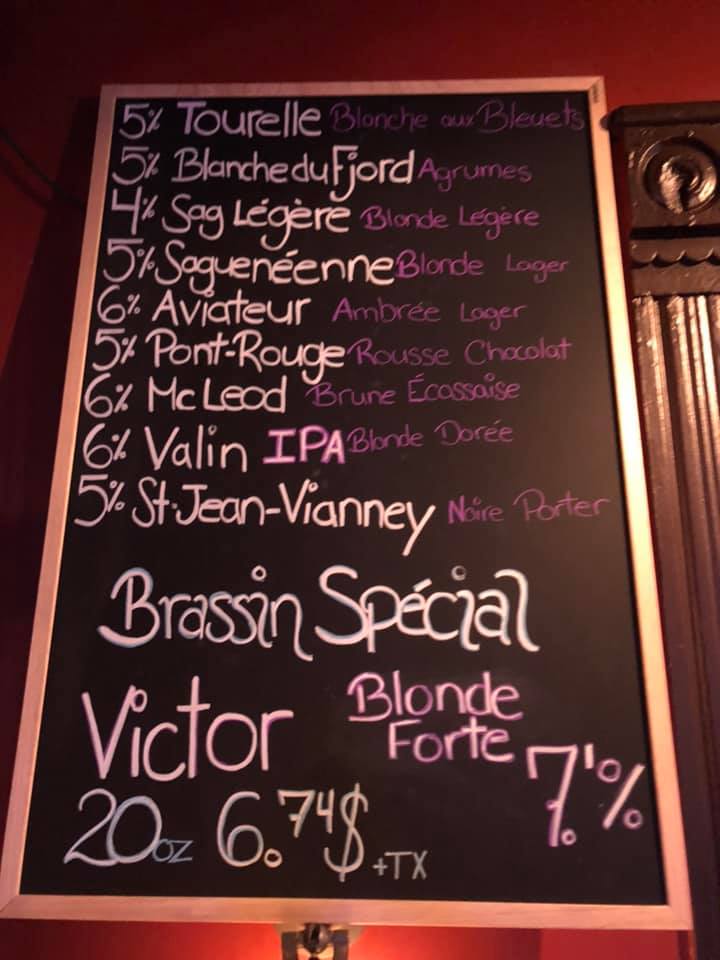 5% Tourelle Blanche aux Bleuets
5% Blanche du Fjord Agrumes
4% Sag Légère Blonde Légère
5% Saguenéenne Blonde Lager
6% Aviateur Ambrée Lager
5% Pont-Rouge Rousse Chocolat
6% Mc Leod Brune Écossaise
6% Valin IPA Blonde Dorée
5% St-Jean-Vianney Noire Porter
Brassin Spécial
Victor Blonde
Forte 7.1%
20oz 6.74$ +TX